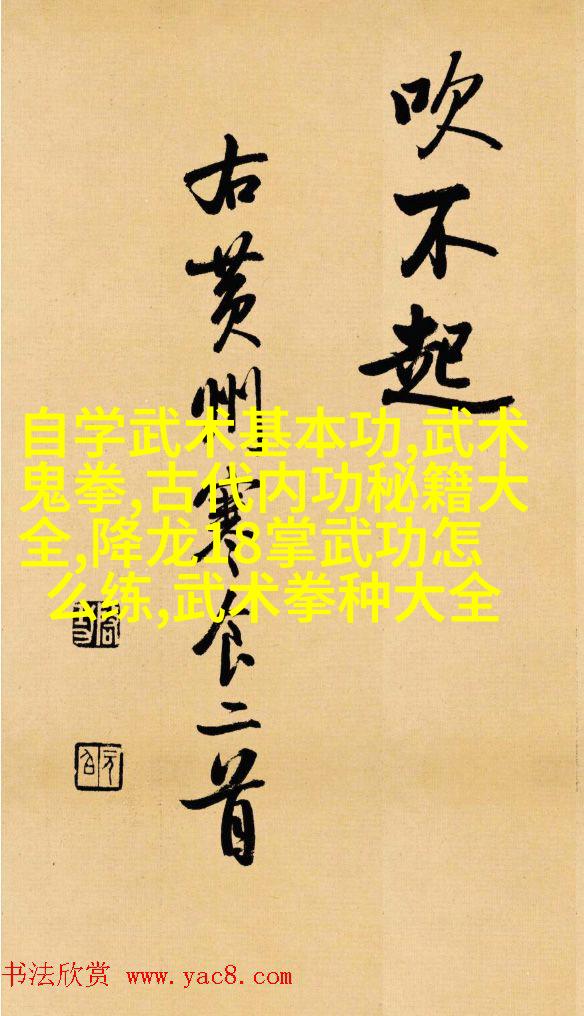 吹不起
右黄州寒食二首
自学武术基本功,武术
鬼拳,古代内功秘籍大
全,降龙18掌武功怎
么练,武术拳种大全
书法欣赏 www.yac8.com